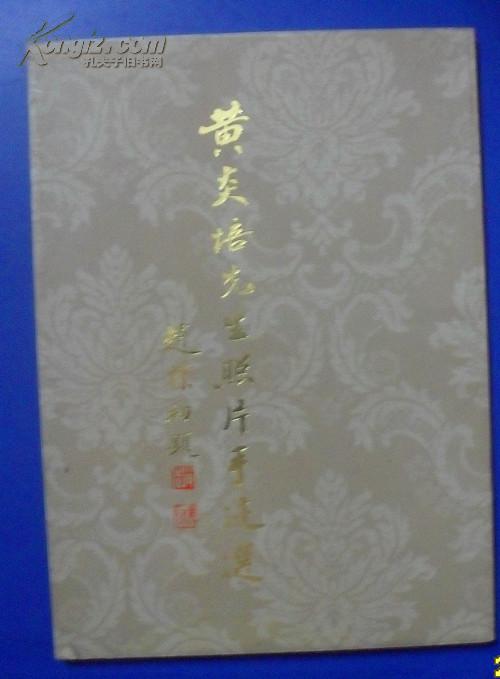 Kongfz.com
孔夫子旧书网
黄炎培先生照片手迹选
赵朴初题